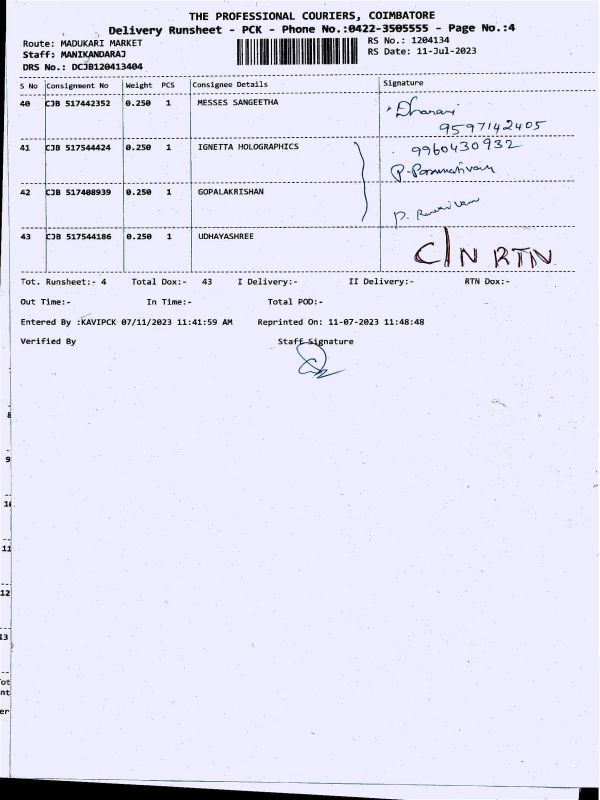 THE PROFESSIONAL COURIERS, COIMBATORE
Delivery Runsheet - PCK - Phone No.:0422-3505555 - Page No.:4
Route: MADUKARI MARKET RS No.: 1204134
Staff: MANIKANDARAJ RS Date: 11-Jul-2023
DRS No.: DCJB120413404
S No Consignment No Weight PCS Consignee Details Signature
40 CJB 517442352 0.250 1 MESSES SANGEETHA Dharani
9597142405
41 CJB 517544424 0.250 1 IGNETTA HOLOGRAPHICS 9960430932
42 CJB 517408939 0.250 1 GOPALAKRISHAN
43 CJB 517544186 0.250 1 UDHAYASHREE C/N RTN
Tot. Runsheet:- 4 Total Dox:- 43 I Delivery:- II Delivery:- RTN Dox:-
Out Time:- In Time:- Total POD:-
Entered By :KAVIPCK 07/11/2023 11:41:59 AM Reprinted On: 11-07-2023 11:48:48
Verified By Staff Signature
9
11
12